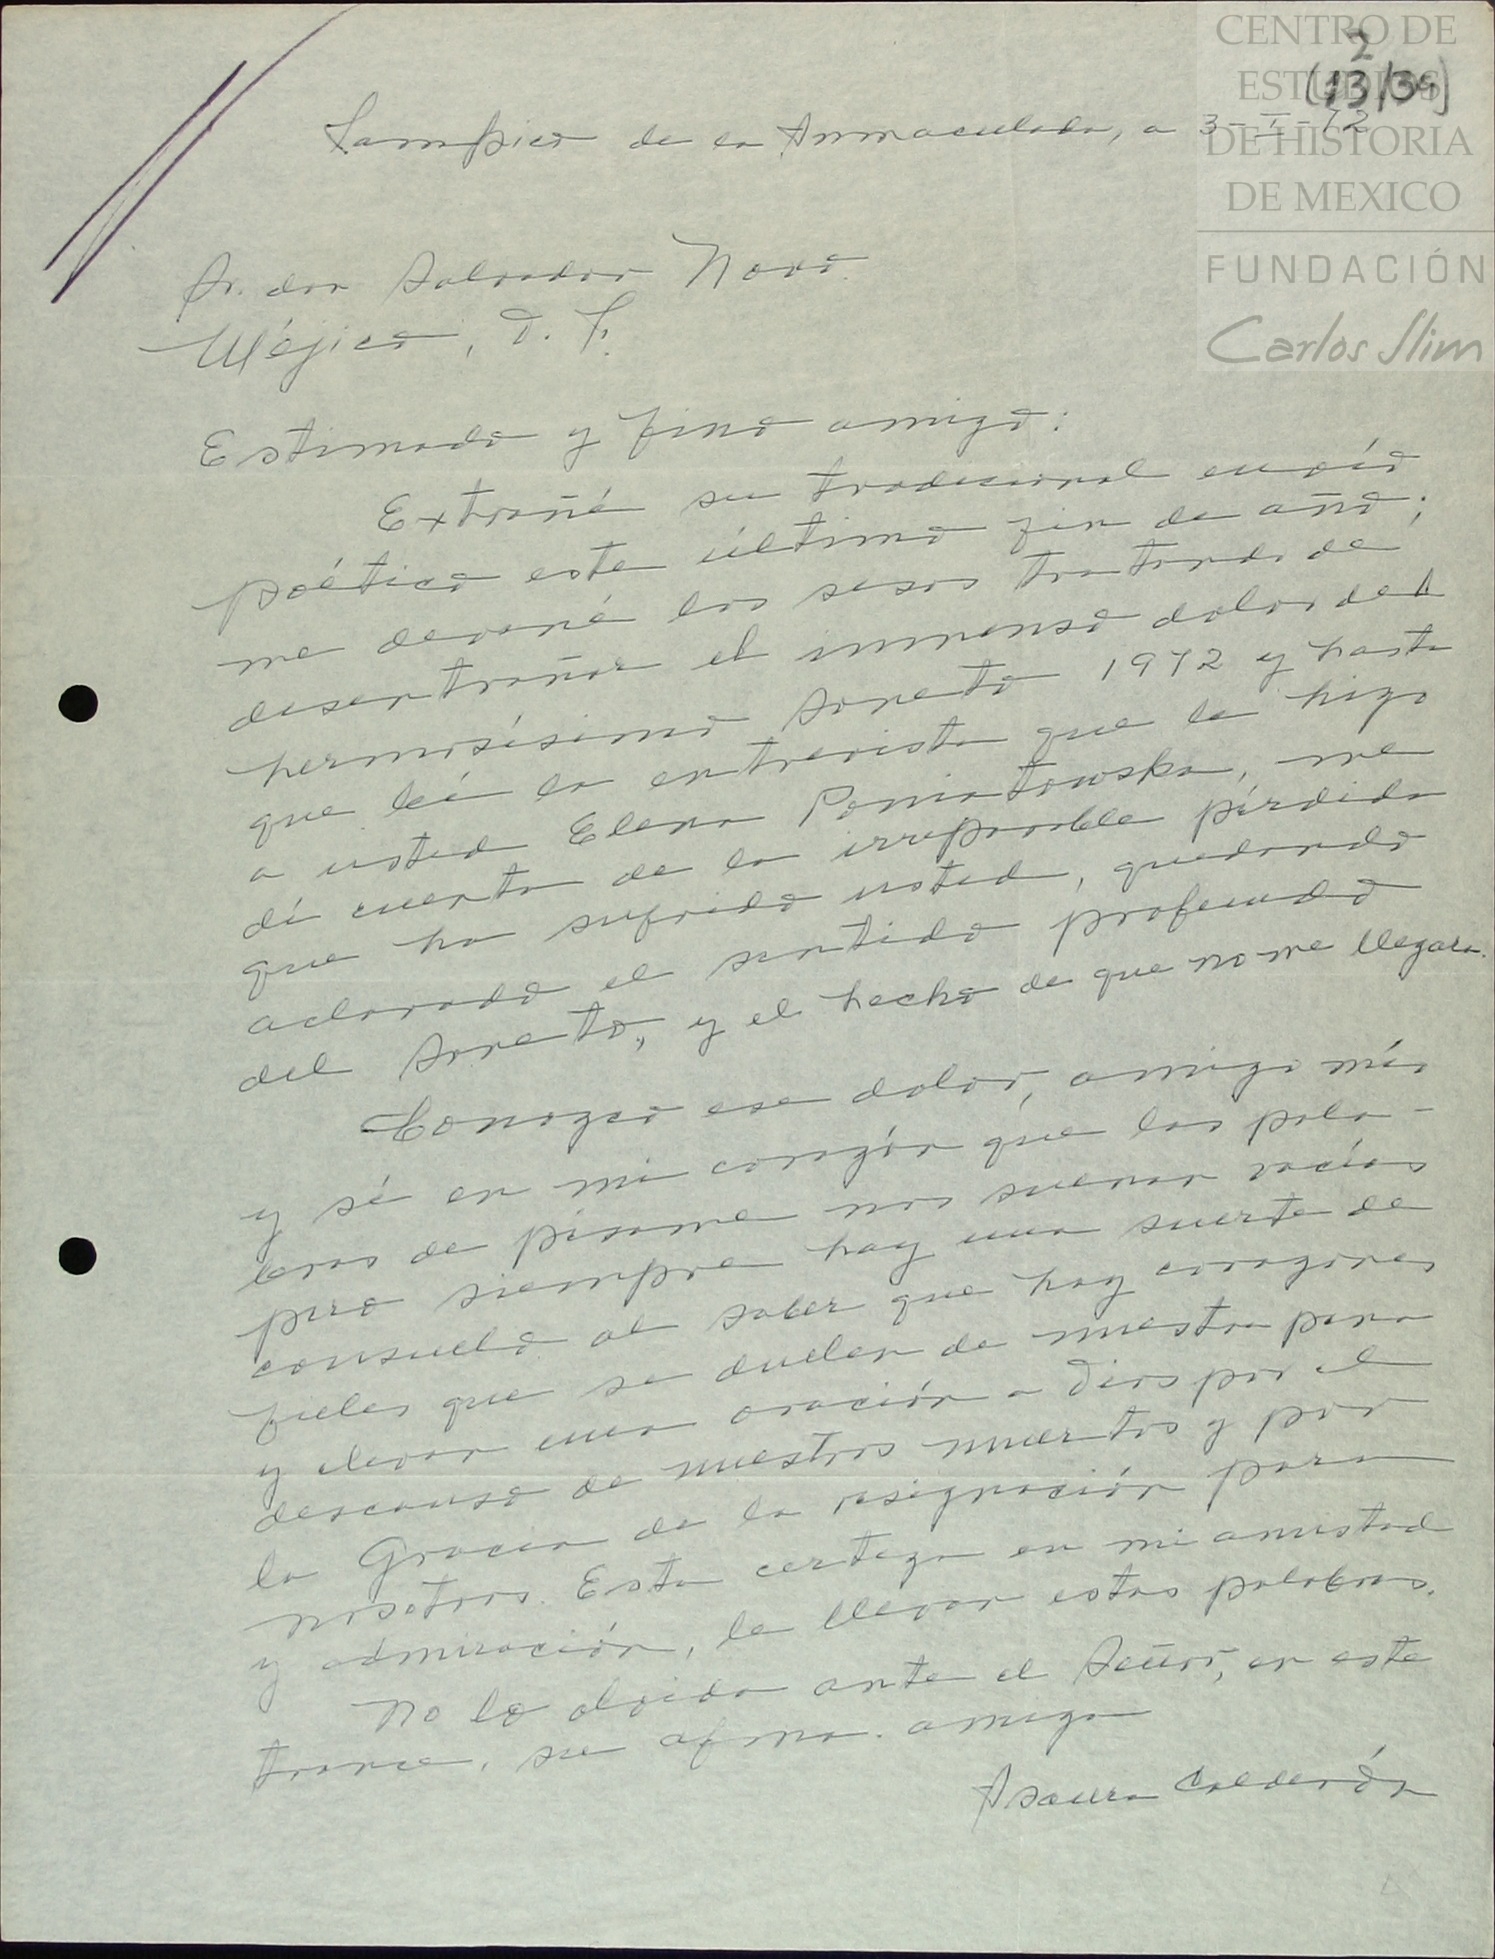 CENTRO DE
ESTUDIOS
DE HISTORIA
DE MEXICO
FUNDACIÓN
Carlos Slim
2
(13/39)
Tampico de la Inmaculada, a 3-I-72
Sr. don Salvador Novo
Méjico, D. F.
Estimado y fino amigo:
Extrañé su tradicional envío
poético este último fin de año;
me devané los sesos tratando de
desentrañar el inmenso dolor del
hermosísimo Soneto 1972 y hasta
que leí la entrevista que le hizo
a usted Elena Poniatowska, me
dí cuenta de la irreparable pérdida
que ha sufrido usted, quedando
aclarado el sentido profundo
del Soneto, y el hecho de que no me llegara.
Conozco ese dolor, amigo mío
y sé en mi corazón que las pala-
bras de pésame nos suenan vacías
pero siempre hay una suerte de
consuelo al saber que hay corazones
fieles que se duelen de nuestra pena
y elevan una oración a Dios por el
descanso de nuestros muertos y por
la Gracia de la resignación para
nosotros. Esta certeza en mi amistad
y admiración, le llevan estas palabras.
No lo olvida ante el Señor, en este
trance, su afma. amiga
Calderón